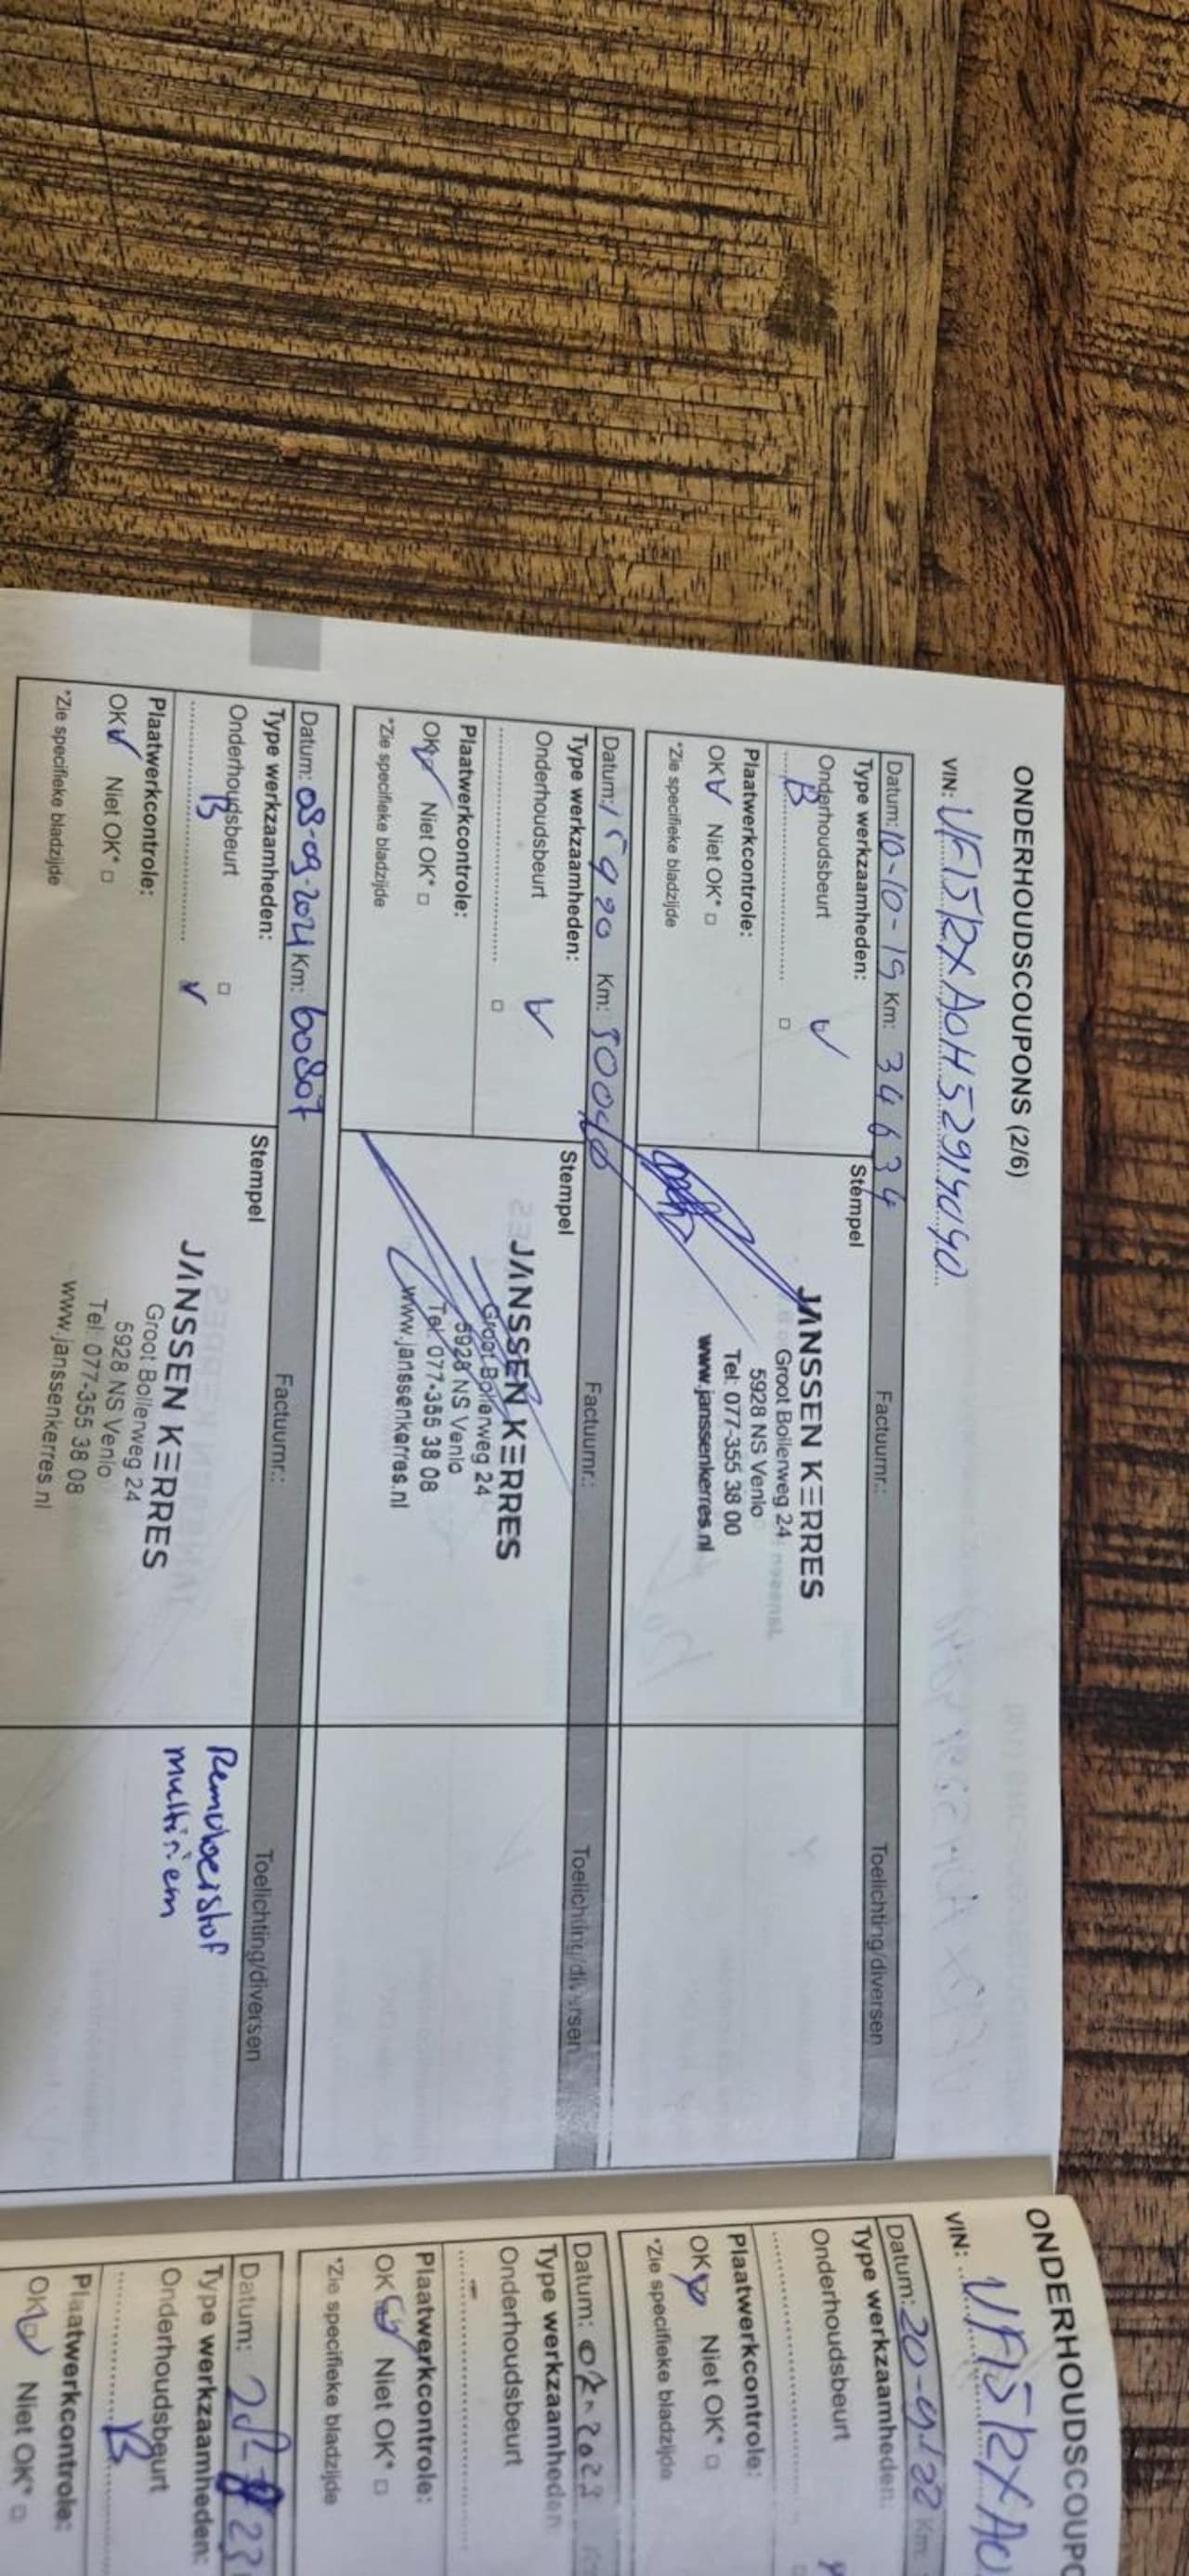 ONDERHOUDSCOUPONS (2/6)
VIN: VF15RXA0H52914040
Datum: 10-10-19 Km: 34634 Factuurnr.: Toelichting/diversen
Type werkzaamheden: Stempel
Onderhoudsbeurt
B
Plaatwerkcontrole:
OK Niet OK*
*Zie specifieke bladzijde
JANSSEN KERRES
Groot Bollerweg 24
5928 NS Venlo
Tel: 077-355 38 00
www.janssenkerres.nl
Datum: Km: Factuurnr.: Toelichting/diversen
Type werkzaamheden: Stempel
Onderhoudsbeurt
Plaatwerkcontrole:
OK Niet OK*
*Zie specifieke bladzijde
JANSSEN KERRES
Groot Bollerweg 24
5928 NS Venlo
Tel: 077-355 38 08
www.janssenkerres.nl
Datum: 08-09-2021 Km: 60807 Factuurnr.: Toelichting/diversen
Type werkzaamheden: Stempel
Onderhoudsbeurt
B
Plaatwerkcontrole:
OK Niet OK*
*Zie specifieke bladzijde
JANSSEN KERRES
Groot Bollerweg 24
5928 NS Venlo
Tel: 077-355 38 08
www.janssenkerres.nl
Remvloeistof
multiriem
ONDERHOUDSCOUP
VIN: VF15RXA0
Datum: 20-9-'22 Km
Type werkzaamheden:
Onderhoudsbeurt
Plaatwerkcontrole:
OK Niet OK*
*Zie specifieke bladzijde
Datum:
Type werkzaamheden
Onderhoudsbeurt
Plaatwerkcontrole:
OK Niet OK*
*Zie specifieke bladzijde
Datum:
Type werkzaamheden:
Onderhoudsbeurt
B
Plaatwerkcontrole:
OK Niet OK*